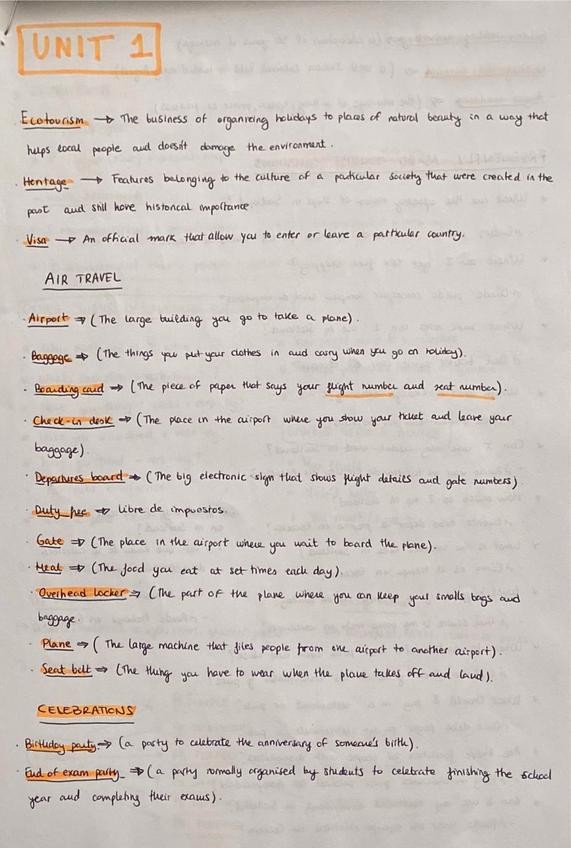 UNIT 1
· Ecotourism → The business of organising holidays to places of natural beauty in a way that
helps local people and doesn't damage the environment.
· Heritage → Features belonging to the culture of a particular society that were created in the
past and still have historical importance.
· Visa → An official mark that allow you to enter or leave a particular country.
AIR TRAVEL
· Airport ⇒ (The large building you go to take a plane).
· Baggage ⇒ (The things you put your clothes in and carry when you go on holiday).
· Boarding card ⇒ (The piece of paper that says your flight number and seat number).
· Check-in desk ⇒ (The place in the airport where you show your ticket and leave your
baggage).
· Departures board ⇒ (The big electronic sign that shows flight details and gate numbers).
· Duty free ⇒ Libre de impuestos.
· Gate ⇒ (The place in the airport where you wait to board the plane).
· Meal ⇒ (The food you eat at set times each day).
· Overhead locker ⇒ (The part of the plane where you can keep your smalls bags and
baggage.
· Plane ⇒ (The large machine that flies people from one airport to another airport).
· Seat belt ⇒ (The thing you have to wear when the plane takes off and land).
CELEBRATIONS
· Birthday party ⇒ (a party to celebrate the anniversary of someone's birth).
· End of exam party ⇒ (a party normally organised by students to celebrate finishing the school
year and completing their exams).